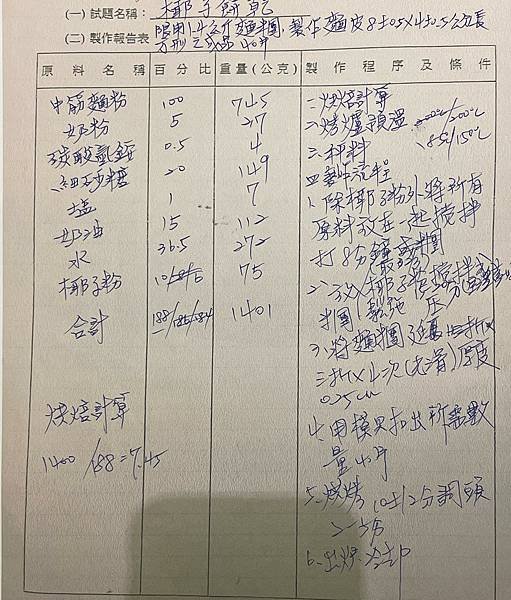 (一) 試題名稱: 椰子餅乾
(二) 製作報告表 限用1.4公斤麵糰,製作麵皮8±0.5×4±0.5公分長
方形之成品40片
原料名稱 百分比 重量(公克) 製作程序及條件
中筋麵粉 100 745
奶粉 5 37
碳酸氫銨 0.5 4
細砂糖 20 149
塩 1 7
奶油 15 112
水 36.5 272
椰子粉 75
合計 1401
烘焙計算
1400/188=7.45
一、烘焙計算
二、烤爐預溫 200℃/200℃
185/150℃
三、秤料
四、製作流程
1、除椰子粉外將所有
原料放在一起攪拌
打8分鐘成糰
2、放入椰子粉
3、將麵糰延壓
三折×4次(光滑)厚度
0.25cm
4、用模具扣出所需數
量40片
5、烘烤 10±12分調頭
6、出爐冷卻